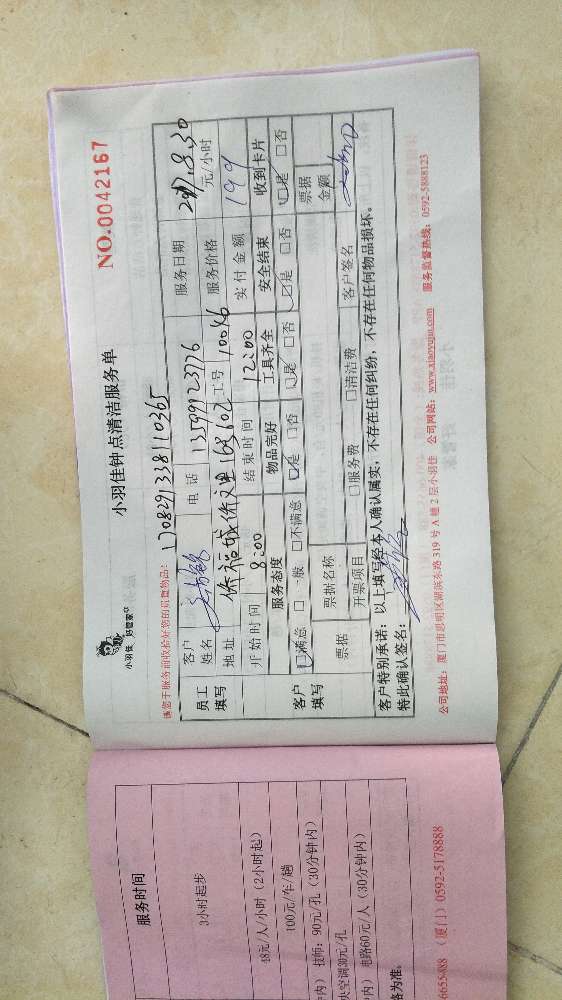 小羽佳 好管家
小羽佳钟点清洁服务单
NO.0042167
请您于服务前收拾好您的贵重物品!
1708291338110365
员工填写
客户姓名
电话 13599923776
服务日期 2017.8.30
地址 侨福城侨文里168 602
工号 10086
服务价格 元/小时
开始时间 8:00
结束时间 12:00
实付金额 199
客户填写
服务态度 物品完好 工具齐全 安全结束 收到卡片
□满意 □一般 □不满意 □是 □否 □是 □否 □是 □否 □是 □否
票据 票据名称 票据金额
开票项目 □服务费 □清洁费 客户签名
客户特别承诺:以上填写经本人确认属实,不存在任何纠纷,不存在任何物品损坏。
特此确认签名:
公司地址:厦门市思明区湖滨东路 319 号 A 幢 2 层小羽佳 公司网站:www.xiaoyujia.com 服务监督热线:0592-5888123
服务时间
3小时起步
48元/人/小时(2小时起)
100元/车/趟
内)技师:90元/孔(30分钟内)
央空调30元/孔
内)电路60元/人(30分钟内)
格为准。
6655488 (厦门)0592-5178888